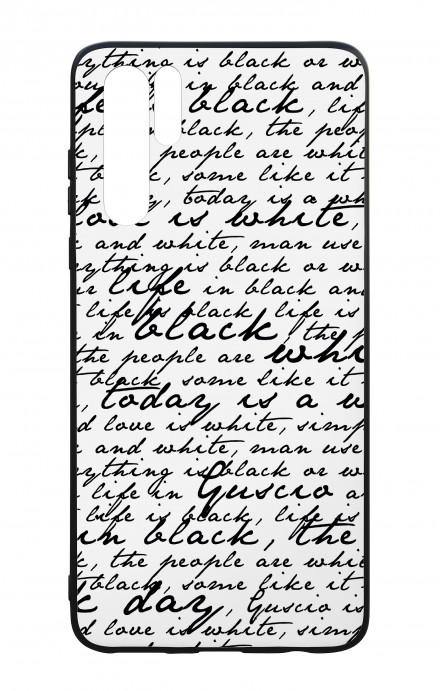 everything is black or w
in black and
black, life
black, the peop
people are whit
black, some like it
today is a wh
love is white,
and white, man use
everything is black or w
life in black and
life is black, life is
in black, the p
the people are whi
black, some like it
today is a w
love is white, simp
and white, man use
everything is black or w
life in Guscio a
life is black, life is
in black, the
the people are whi
black, some like it
day, Guscio is
love is white, simp